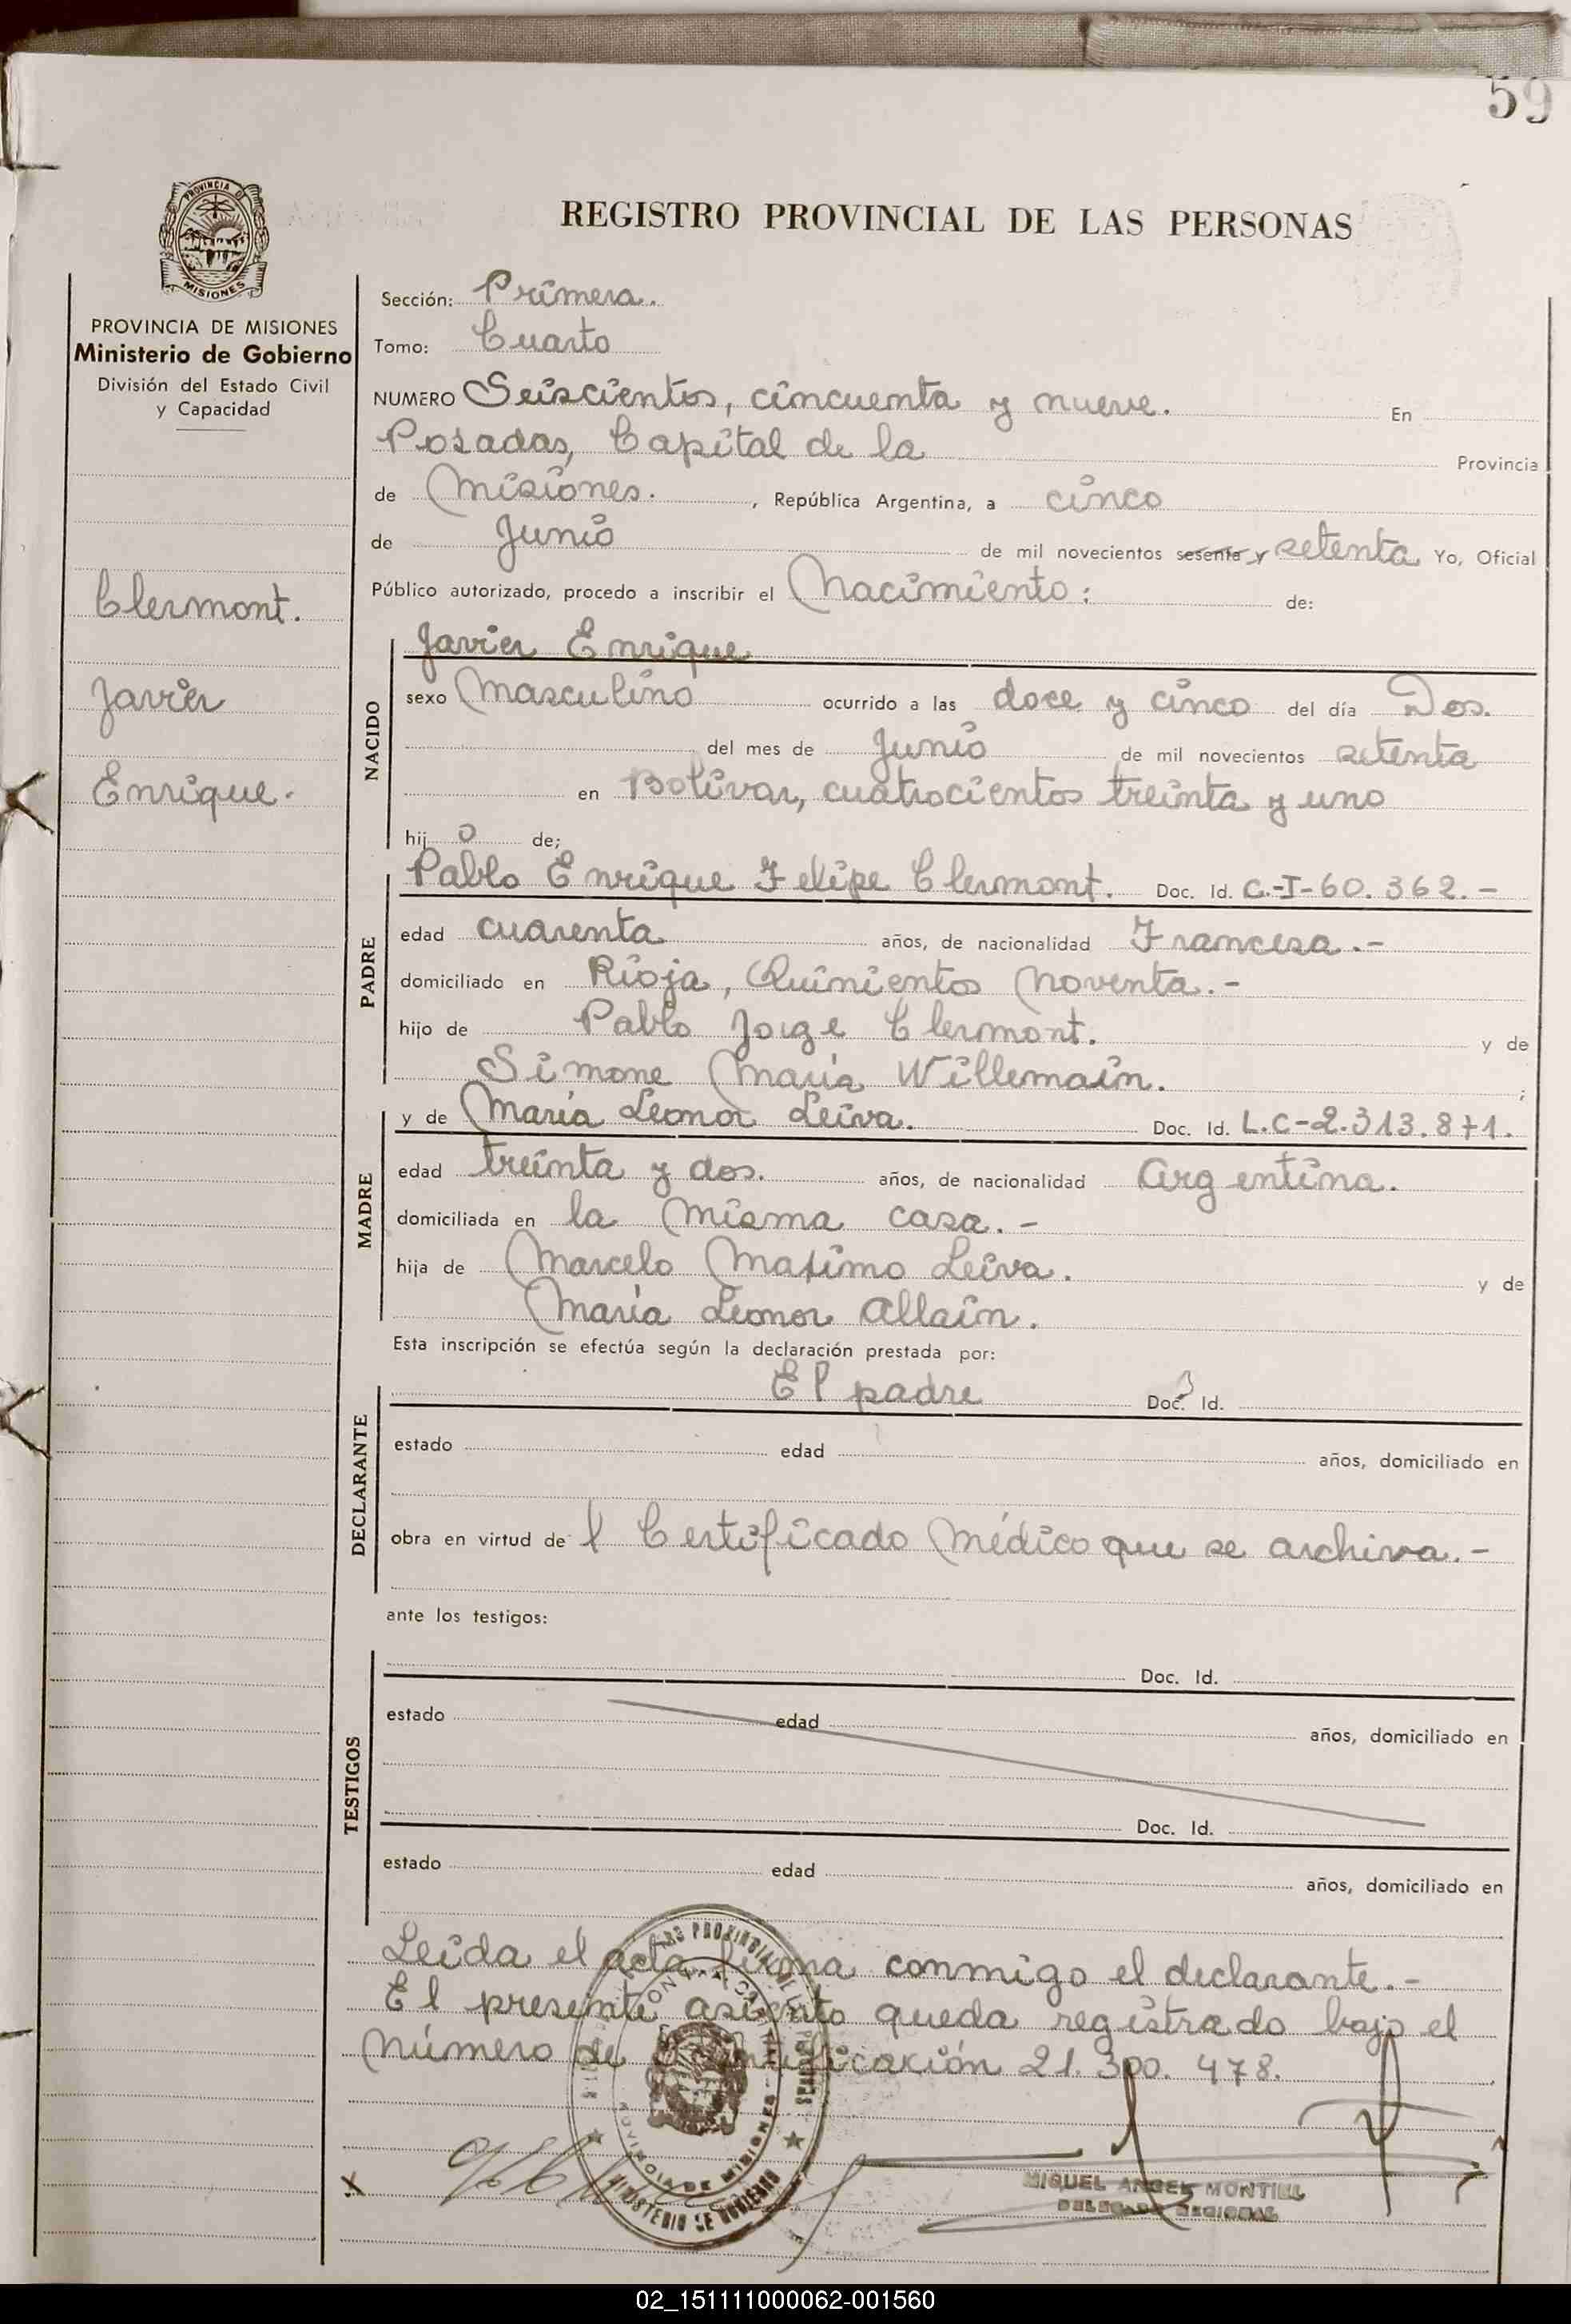 59
PROVINCIA DE
MISIONES
REGISTRO PROVINCIAL DE LAS PERSONAS
PROVINCIA DE MISIONES
Ministerio de Gobierno
División del Estado Civil
y Capacidad
Clermont.
Javier
Enrique.
Sección: Primera.
Tomo: Cuarto
NUMERO Seiscientos, cincuenta y nueve. En
Posadas, Capital de la Provincia
de Misiones. , República Argentina, a cinco
de Junio de mil novecientos sesenta y setenta Yo, Oficial
Público autorizado, procedo a inscribir el Nacimiento: de:
NACIDO
Javier Enrique
sexo Masculino ocurrido a las doce y cinco del día Dos.
del mes de Junio de mil novecientos setenta
en Bolívar, cuatrocientos treinta y uno
hij o de;
PADRE
Pablo Enrique Felipe Clermont. Doc. Id. C.-I-60.362.-
edad cuarenta años, de nacionalidad Francesa.-
domiciliado en Rioja, Quinientos Noventa.-
hijo de Pablo Jorge Clermont. y de
Simone María Willemain. ;
MADRE
y de María Leonor Leiva. Doc. Id. L.C-2.313.871.
edad treinta y dos. años, de nacionalidad Argentina.
domiciliada en la misma casa.-
hija de Marcelo Maximo Leiva. y de
María Leonor Allain.
Esta inscripción se efectúa según la declaración prestada por:
DECLARANTE
El padre Doc. Id.
estado edad años, domiciliado en
obra en virtud de l Certificado Médico que se archiva.-
ante los testigos:
TESTIGOS
Doc. Id.
estado edad años, domiciliado en
Doc. Id.
estado edad años, domiciliado en
Leída el acta firma conmigo el declarante.-
El presente asiento queda registrado bajo el
Número de identificación 21.300.478.
PROVINCIA DE MISIONES
MINISTERIO DE GOBIERNO
X
MIGUEL ANGEL MONTIEL
DELEGADO REGIONAL
02_151111000062-001560